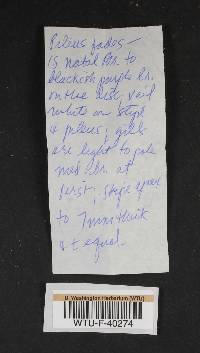 Pileus fades —
is natal Br. to
blackish purple br.
on the disc, veil
white on stipe
& pileus; gills
are light to pale
med. br. at
first; stipe
to 7mm thick
& ± equal.
U. Washington Herbarium (WTU)
WTU-F-40274